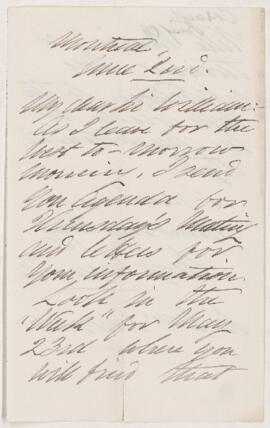 Montreal,
June 2nd.
My dear Sir William:
As I leave for the
West to-morrow
morning, I send
you Agenda for
Thursday's Meeting
and letters for
your information.
Look in the
"Week" for May
23rd where you
will find that